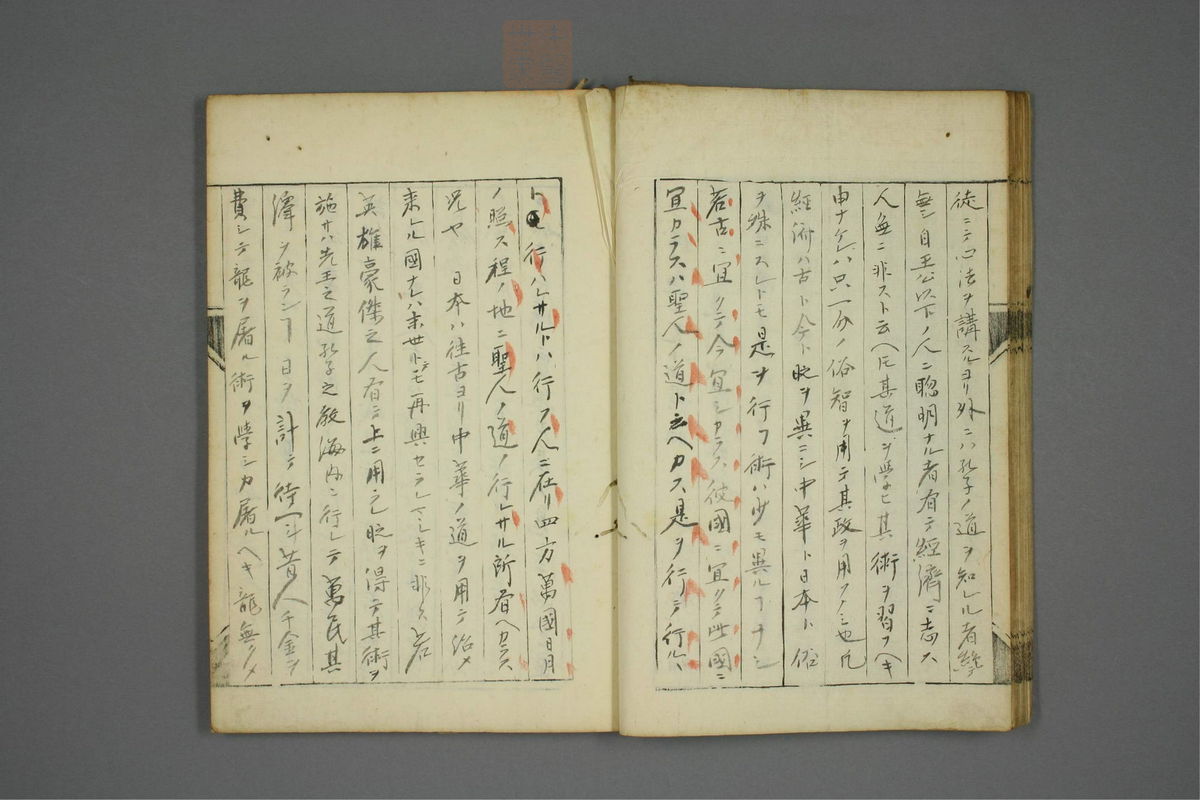 徒ニテ心法ヲ講スルヨリ外ニハ孔子ノ道ヲ知レル者絶テ
無シ自王公以下ノ人ニ聡明ナル者有テ經濟ニ志ス
人無ニ非スト云ヘ𪜈其道ヲ學ヒ其術ヲ習フヘキ
申ナケレハ只一分ノ俗智ヲ用テ其政ヲ用フノミ也凡
經術ハ古ト今ト時ヲ異ニシ中華ト日本ト俗
ヲ殊ニスレトモ是ヲ行フ術ハ少モ異ルヿナシ
若古ニ宜クテ今宜シカラス彼國ニ宜クテ此國ニ
宜カラスハ聖人ノ道ト云ヘカラス是ヲ行テ行ルヽ
ト行ハレサルトハ行フ人ニ在リ四方萬國日月
ノ照ス程ノ地ニ聖人ノ道ノ行レサル所有ヘカラス
況ヤ 日本ハ往古ヨリ中華ノ道ヲ用テ治メ
来レル國ナレハ末世トテモ再興セラレマシキニ非ス若
英雄豪傑之人有テ上ニ用ラレ時ヲ得テ其術ヲ
施サハ先王之道孔子之教海内ニ行レテ萬民其
澤ヲ被ランヿ日ヲ計テ待ヘシ昔人千金ヲ
費シテ龍ヲ屠ル術ヲ學シカ屠ルヘキ龍無クメ